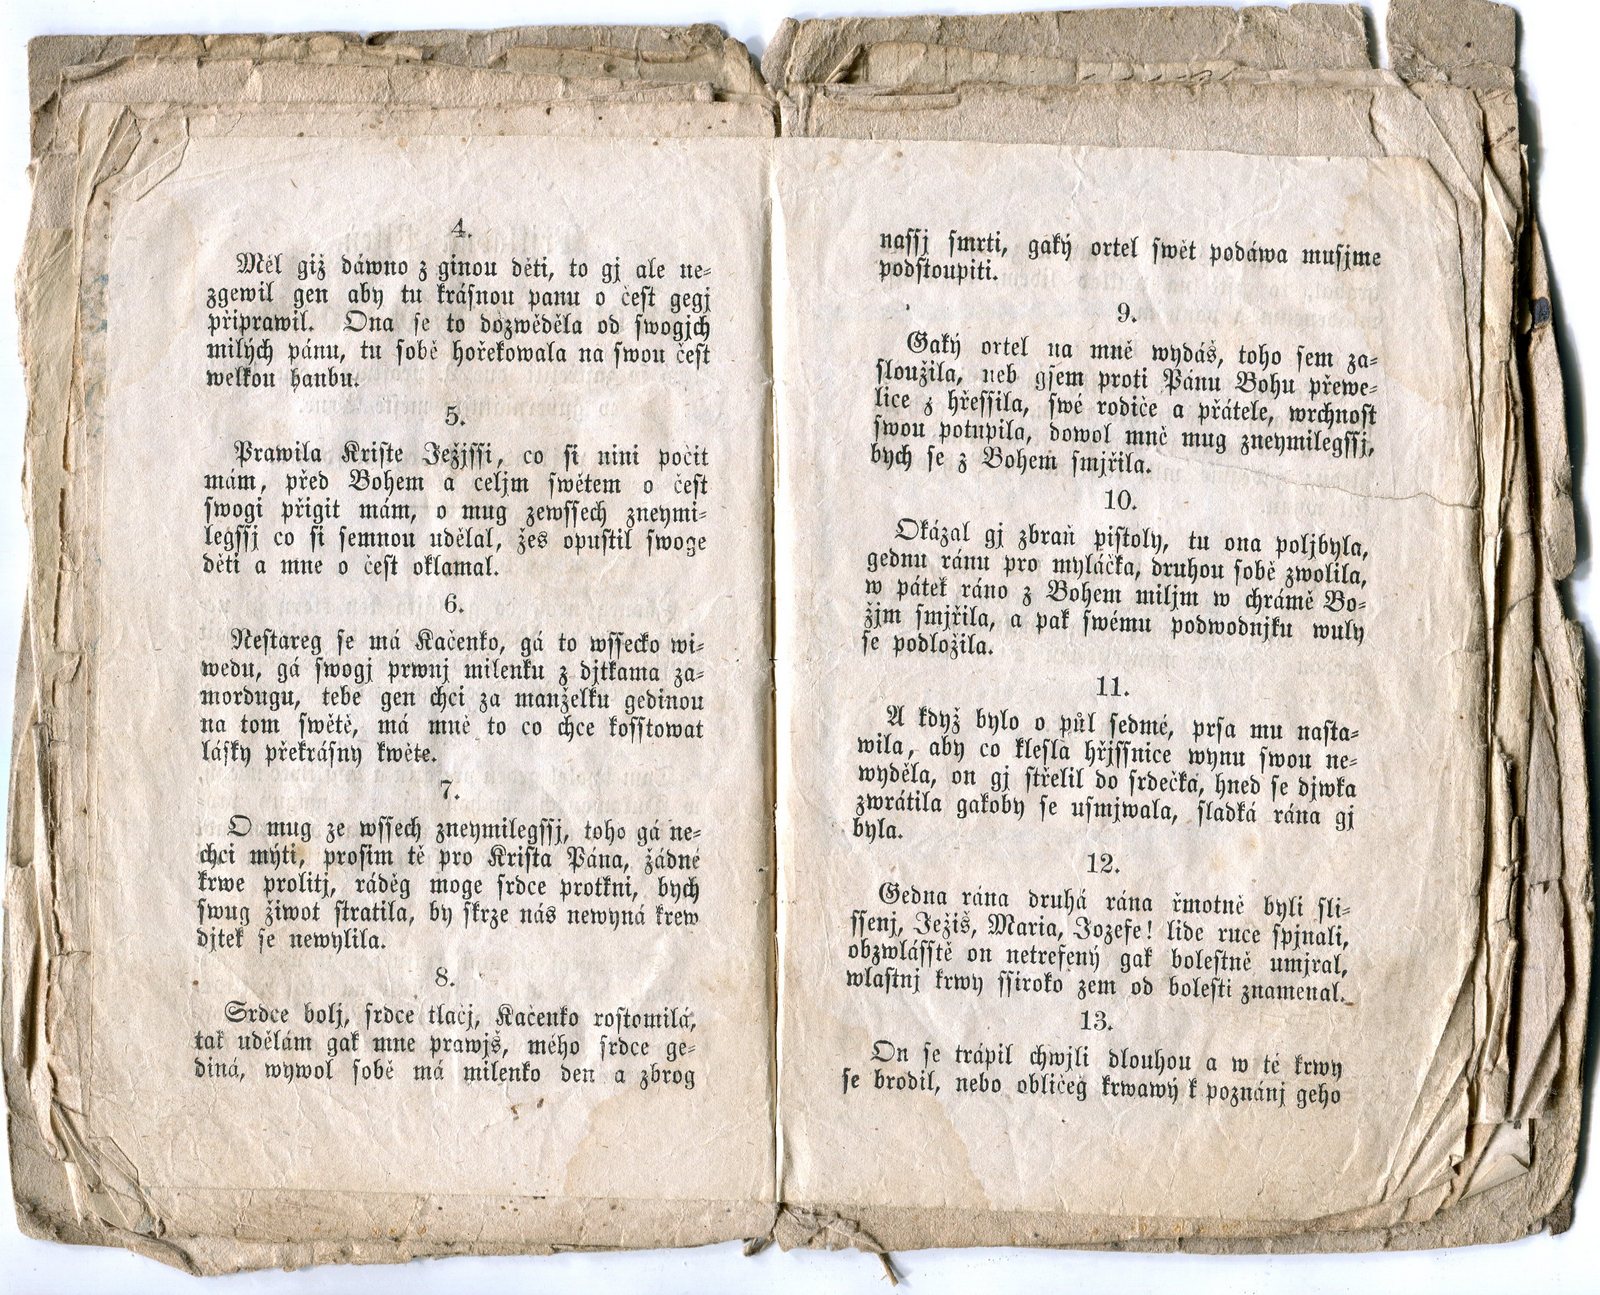 4.
Měl giž dáwno z ginou děti, to gj ale ne=
zgewil gen aby tu krásnou panu o čest gegj
připrawil. Ona se to dozwěděla od swogjch
milých pánu, tu sobě hořekowala na swou čest
welkou hanbu.
5.
Prawila Kriste Ježjssi, co si nini počit
mám, před Bohem a celjm swětem o čest
swogi přigit mám, o mug zewssech zneymi=
legssj co si semnou udělal, žes opustil swoge
děti a mne o čest oklamal.
6.
Nestareg se má Kačenko, gá to wssecko wi=
wedu, gá swogj prwnj milenku z djtkama za=
mordugu, tebe gen chci za manželku gedinou
na tom swětě, má mně to co chce kosstowat
lásky překrásny kwěte.
7.
O mug ze wssech zneymilegssj, toho gá ne=
chci mýti, prosim tě pro Krista Pána, žádné
krwe prolitj, ráděg moge srdce protkni, bych
swug žiwot stratila, by skrze nás newyná krew
djtek se newylila.
8.
Srdce bolj, srdce tlačj, Kačenko rostomilá,
tak udělám gak mne prawjš, mého srdce ge=
diná, wywol sobě má milenko den a zbrog
nassj smrti, gaký ortel swět podáwa musjme
podstoupiti.
9.
Gaký ortel na mně wydáš, toho sem za=
sloužila, neb gsem proti Pánu Bohu přewe=
lice z hřessila, swé rodiče a přátele, wrchnost
swou potupila, dowol mně mug zneymilegssj,
bych se z Bohem smjřila.
10.
Okázal gj zbraň pistoly, tu ona poljbyla,
gednu ránu pro myláčka, druhou sobě zwolila,
w pátek ráno z Bohem miljm w chrámě Bo=
žjm smjřila, a pak swému podwodnjku wuly
se podložila.
11.
A když bylo o půl sedmé, prsa mu nasta=
wila, aby co klesla hřjssnice wynu swou ne=
wyděla, on gj střelil do srdečka, hned se djwka
zwrátila gakoby se usmjwala, sladká rána gj
byla.
12.
Gedna rána druhá rána řmotně byli sli=
ssenj, Ježiš, Maria, Jozefe! lide ruce spjnali,
obzwlásstě on netrefený gak bolestně umjral,
wlastnj krwy ssiroko zem od bolesti znamenal.
13.
On se trápil chwjli dlouhou a w té krwy
se brodil, nebo obličeg krwawý k poznánj geho